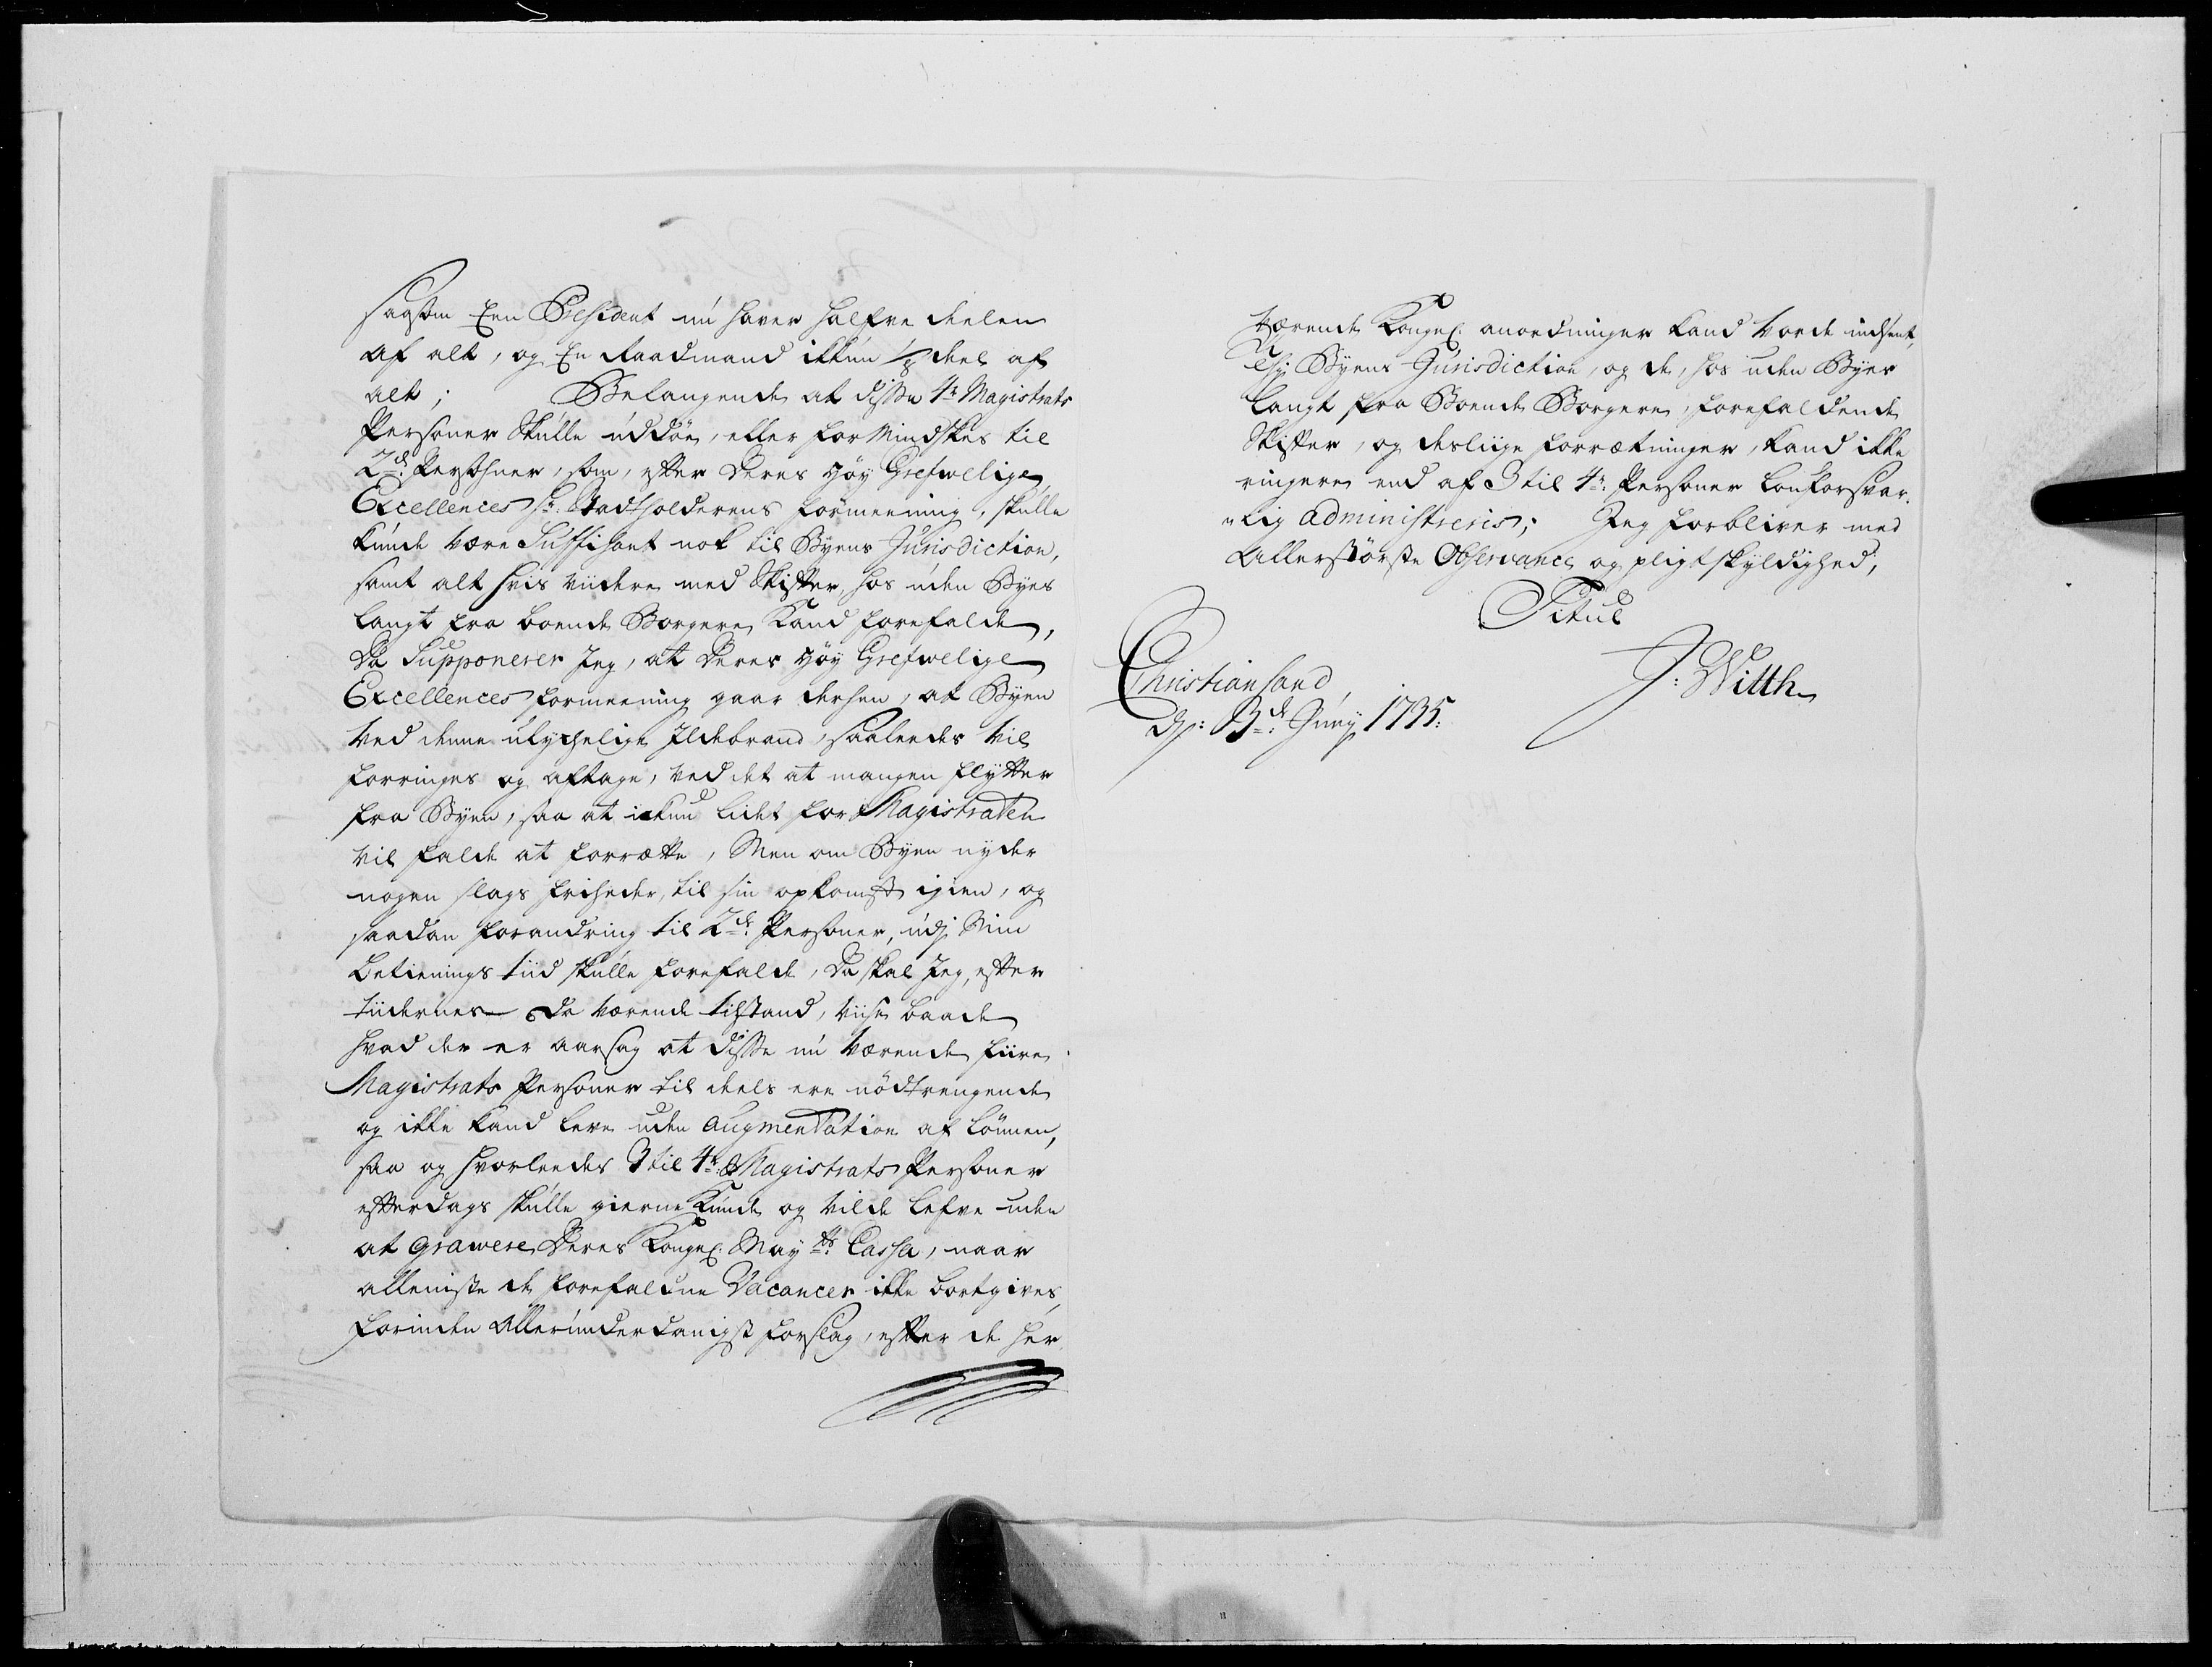 saasom Een President nu haver halfve deelen
af alt, og En Raadmand ikkun 1/8 deel af
alt; Belangende at disse 4re Magistrats
Personer Skulle uddöe, eller formindskes til
2de Persohner, som, efter Deres Höy Grefwelige
Excellences Hr Stadtholderens formeening, skulle
kunde være Suffisant nok til Byens Jurisdiction,
samt alt hvis viidere med Skifter, hos uden Byes
langt fra boende Borgere Kand forefalde,
Da Supponerer Jeg, at Deres Höy Grefwelige
Excellences formeening gaar derhen, at Byen
ved denne ulychelige Ildebrand, saaleedes vil
forringes og aftage, ved det at mangen flytter
fra Byen, saa at ickun lidet for Magistraten
vil falde at forrætte, Men om Byen nyder
nogen slags friheder, til sin opkomst igien, og
saadan forandring til 2de Personer, udj Min
Betienings tiid skulle forefalde, Da skal Jeg, efter
tiidernes Da værende tilstand, viise baade
hvad der er aarsag at disse nu værende fiire
Magistrats Personer til deels ere nödtrengende
og ikke kand leve uden Augmentation af lönnen,
saa og hvorleedes 3 til 4re Magistrats Personer
efterdags skulle gierne Kunde og vilde lefve uden
at Grawere Deres Kongel: Mayts: Cassa, naar
alleniste de forefaldne Vacancer ikke bortgives,
forinden Allerunderdanigst forslag, efter de her
værende Kongel: anordninger kand vorde indsent,
Thj Byens Jurisdiction, og de, hos uden Byes
langt fra Boende Borgere, forefaldende
Skifter, og desliige forrætninger, kand ikke
ringere end af 3 til 4re Personer beforsvar-
lig administreris; Jeg forbliver med
Allerstörste Observance og pligtskyldighed,
Titul
Christiansand J: Witth
d: 3de Juny 1735: